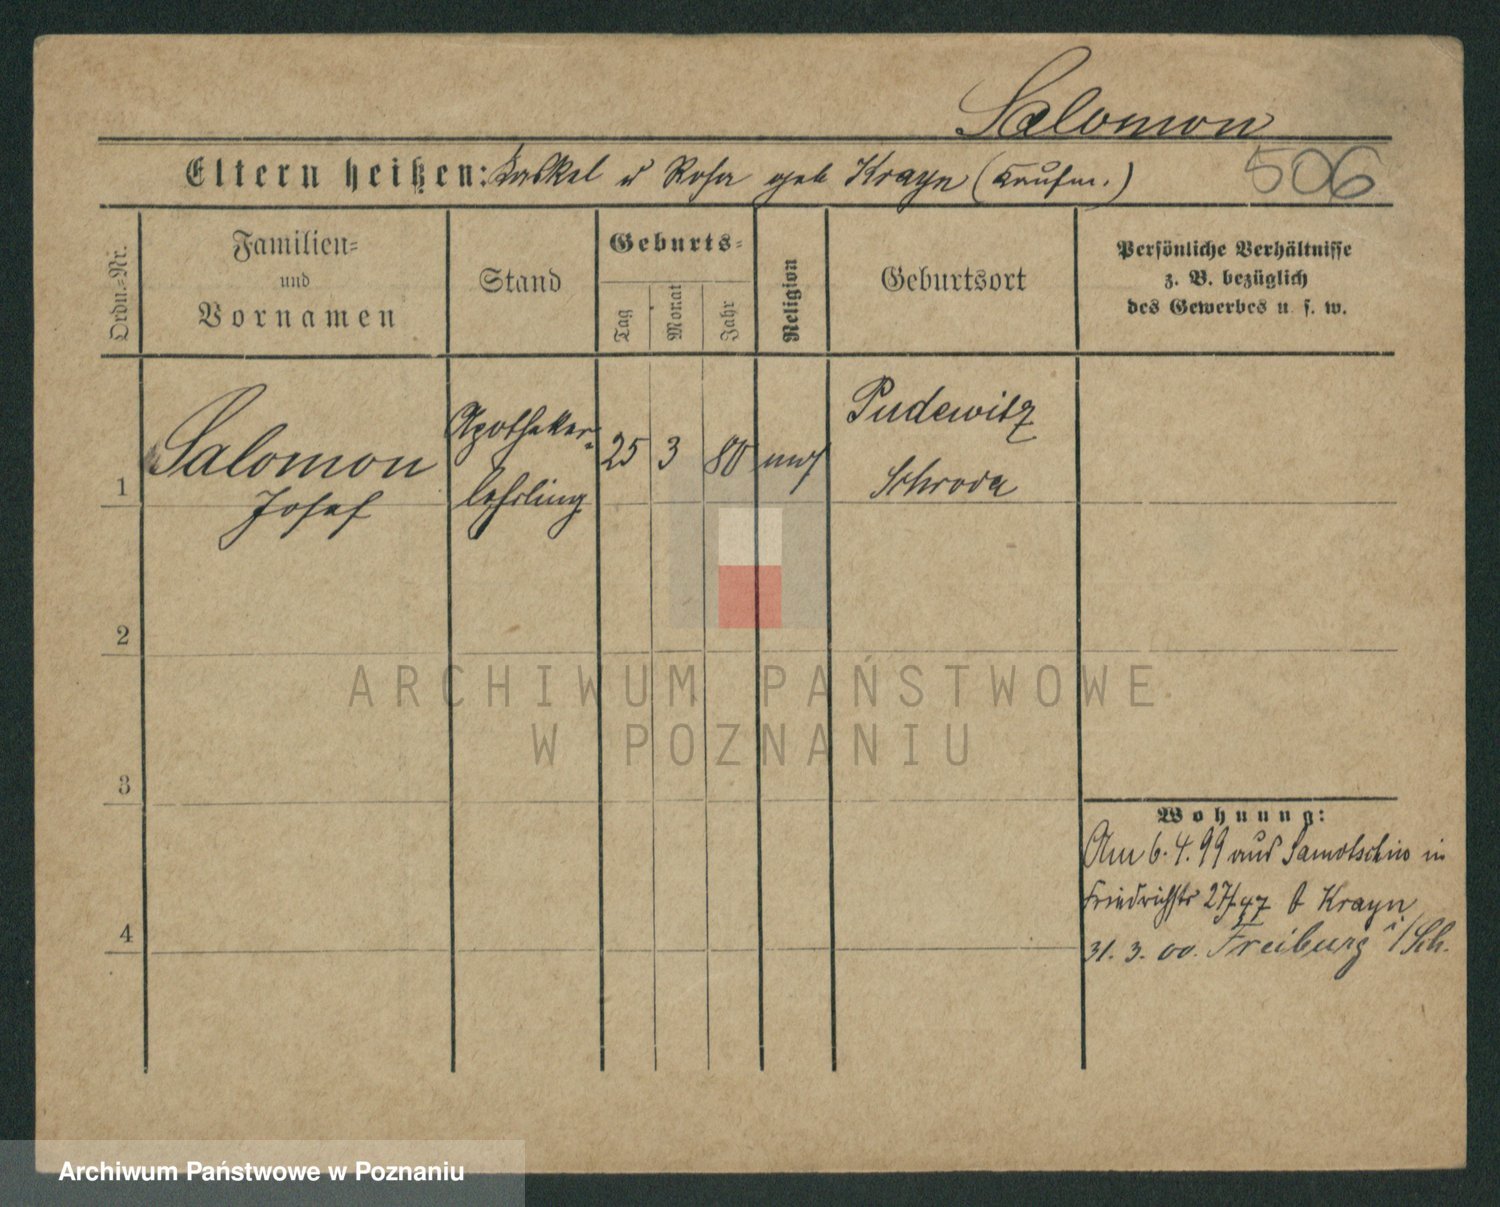 Salomon
Eltern heißen: Kaskel u Rosa geb Krayn (Kaufm.)
506
Ordn.-Nr.
Familien-
und
Vornamen
Stand
Geburts-
Tag
Monat
Jahr
Religion
Geburtsort
Persönliche Verhältnisse
z. B. bezüglich
des Gewerbes u. s. w.
1
Salomon
Josef
Apotheker-
lehrling
25
3
80
mos
Pudewitz
Schroda
2
3
4
Wohnung:
Am 6. 4. 99 aus Samotschin in
Friedrichstr 27 b Krayn
31. 3. 00. Freiburg i/Sch.
ARCHIWUM PAŃSTWOWE
W POZNANIU
Archiwum Państwowe w Poznaniu